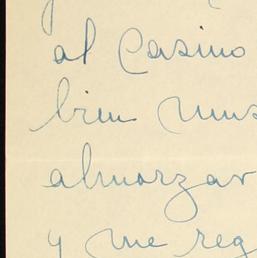 al Casino
bien
almorzar
y me reg